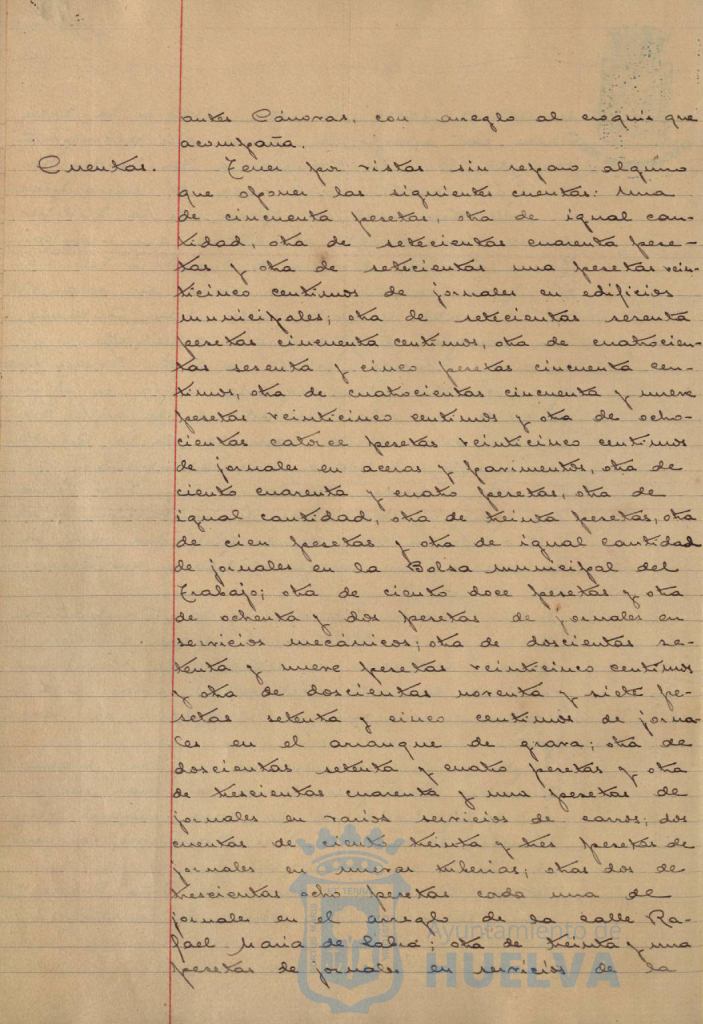 antes Cánovas, con arreglo al cróquis que
acompaña.
Cuentas. Tener por vistas sin reparo alguno
que oponer las siguientes cuentas: una
de cincuenta pesetas, otra de igual can-
tidad, otra de setecientas cuarenta pese-
tas y otra de setecientas una pesetas vein-
ticinco centimos de jornales en edificios
municipales; otra de setecientas sesenta
pesetas cincuenta centimos, otra de cuatrocien-
tas sesenta y cinco pesetas cincuenta cen-
timos, otra de cuatrocientas cincuenta y nueve
pesetas veinticinco centimos y otra de ocho-
cientas catorce pesetas veinticinco centimos
de jornales en aceras y pavimentos, otra de
ciento cuarenta y cuatro pesetas, otra de
igual cantidad, otra de treinta pesetas, otra
de cien pesetas y otra de igual cantidad
de jornales en la Bolsa municipal del
Trabajo; otra de ciento doce pesetas y otra
de ochenta y dos pesetas de jornales en
servicios mecánicos; otra de doscientas se-
tenta y nueve pesetas veinticinco centimos
y otra de doscientas noventa y siete pe-
setas setenta y cinco centimos de jorna-
les en el arranque de grava; otra de
doscientas setenta y cuatro pesetas y otra
de trescientas cuarenta y una pesetas de
jornales en varios servicios de carros; dos
cuentas de ciento treinta y tres pesetas de
jornales en nuevas tuberias; otras dos de
trescientas ocho pesetas cada una de
jornales en el arreglo de la calle Ra-
fael Maria de Labra; otra de treinta y una
pesetas de jornales en servicios de la
Ayuntamiento de
HUELVA